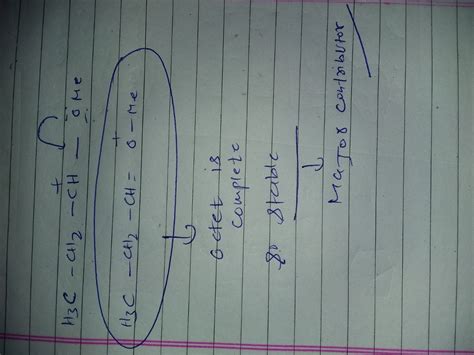 H₃C - CH₂ - C⁺H - ÖMe
H₃C - CH₂ - CH = O⁺ - Me
octet is
complete
so stable
Major contributor